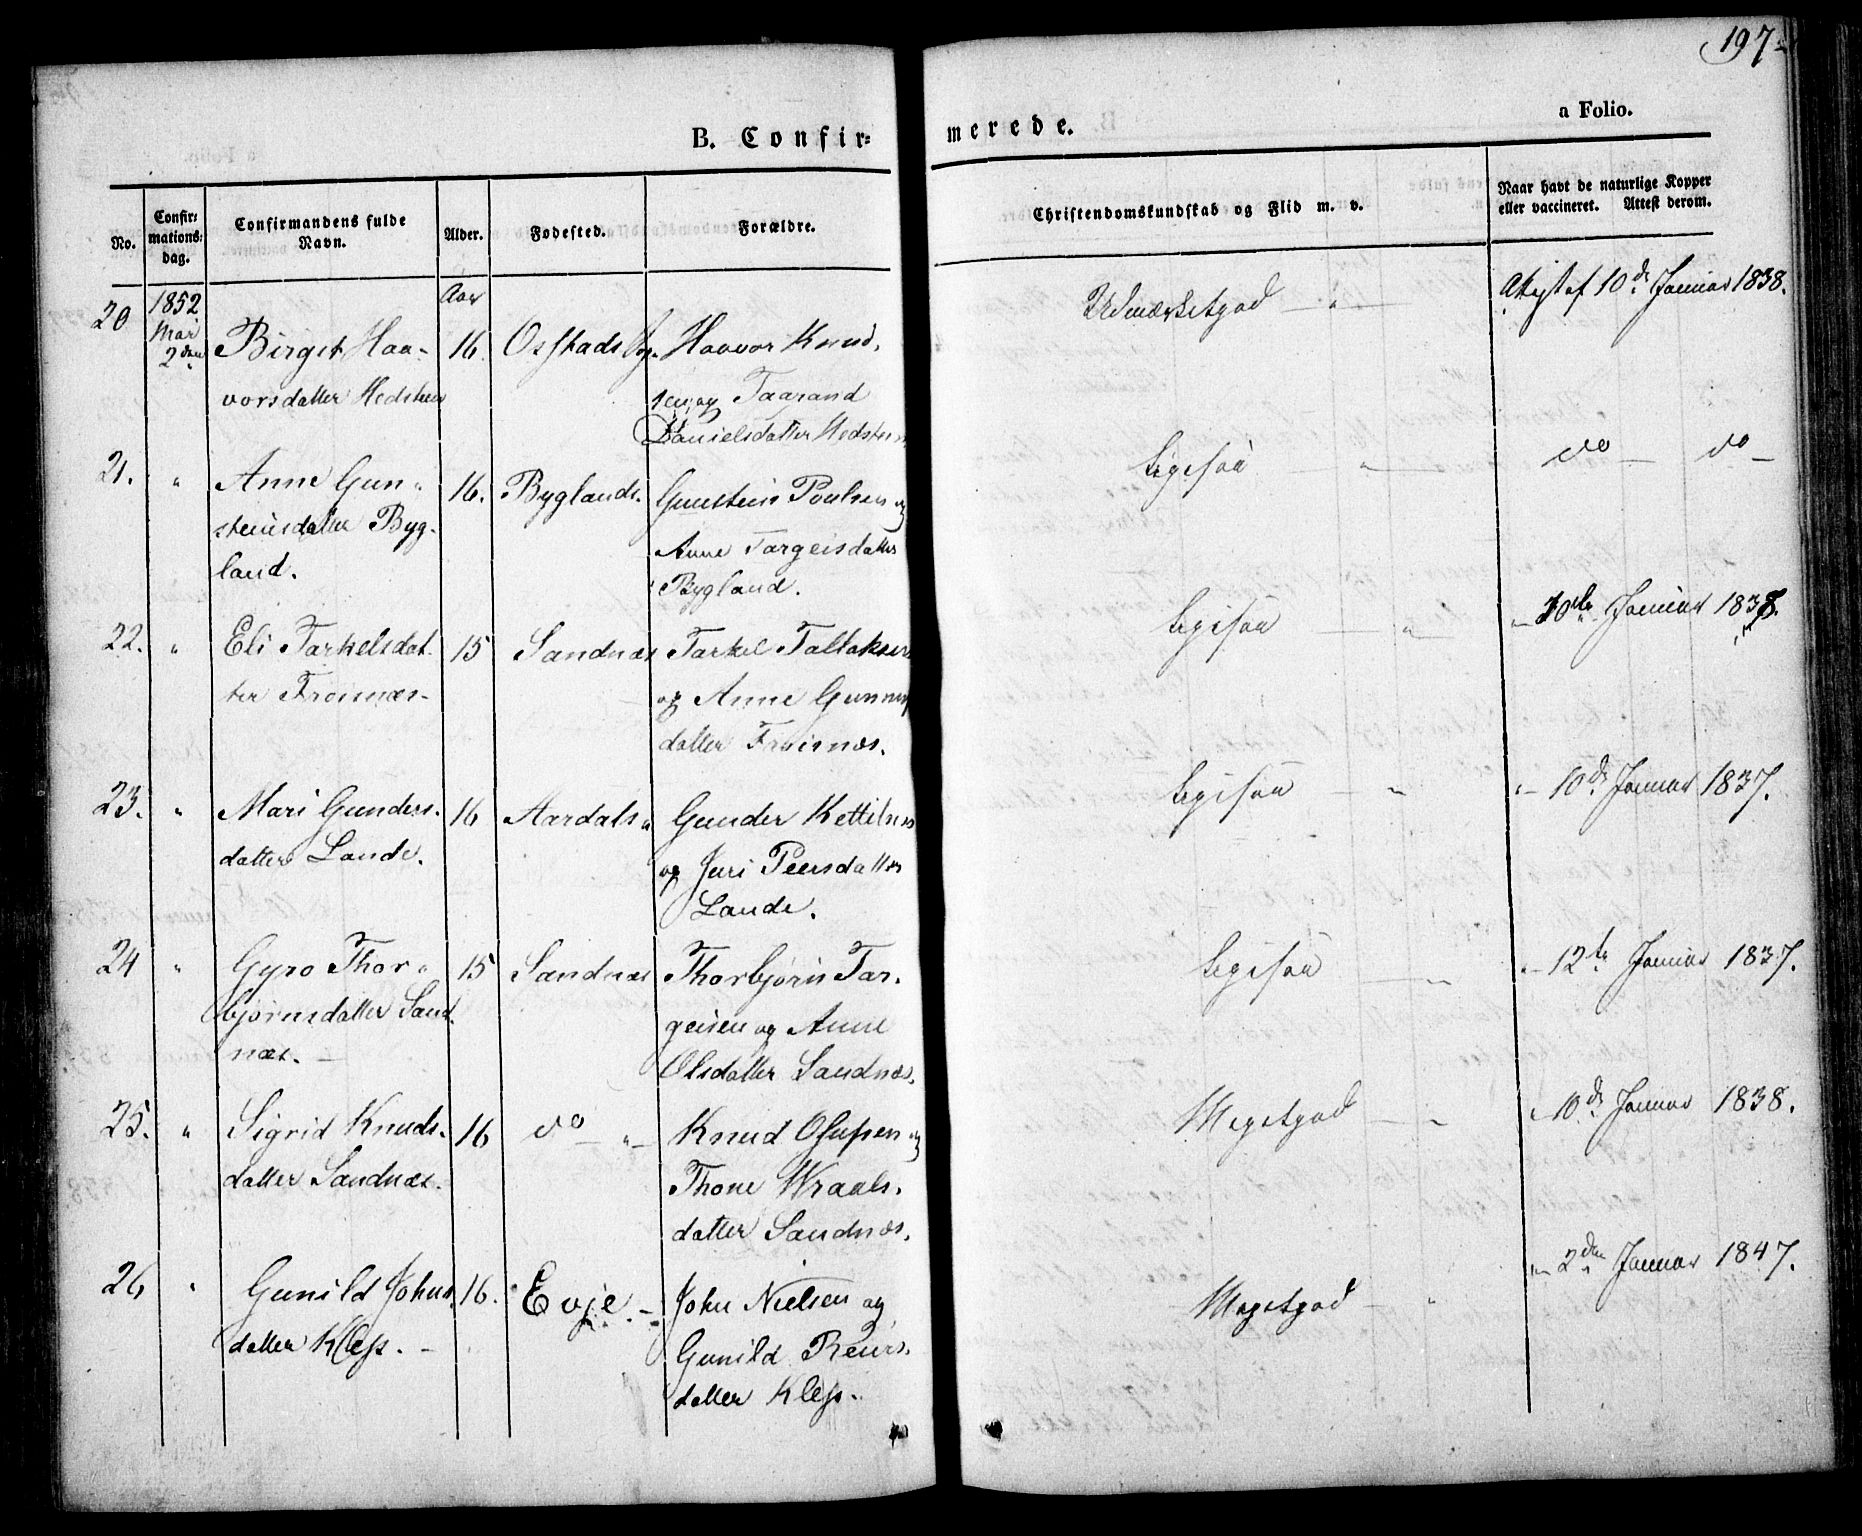 197
B. Confir=
merede.
a Folio.
No.
Confir=
mations=
dag.
Confirmandens fulde
Navn.
Alder.
Fødested.
Forældre.
Christendomskundskab og Flid m. v.
Naar havt de naturlige Kopper
eller vaccineret. Attest derom.
20
1852
Mai
2den
Birget Haa-
vorsdatter Hedsteen
Aar
16.
Ostads
Haavor Knud,
sen, og Taarand
Danielsdatter Hedsteen
Udmærketgod — " —
Attest af 10de Januar 1838.
21. "
Anne Gun,
steinsdatter Byg-
land.
16.
Byglands.
Gunstein Poulsen og
Anne Targeisdatter
Bygland.
Ligesaa — " —
do — do —
22. "
Eli Tarkelsdat-
ter Froisnæs-
15
Sandnæs
Tarkel Taltaksen
og Anne Gunners
datter Froisnæs.
Ligesaa — " —
"— 10de Januar 1838.
23. "
Mari Gunders-
datter Lande.
16
Aardals "
Gunder Kettilsen
og Juri Peersdatter
Lande.
Ligesaa — "
"— 10de Januar 1837.
24 "
Gyro Thor-
bjørnsdatter Sand
næs. —
15
Sandnæs
Thorbjørn Tar-
geisen og Anne
Olsdatter Sandnæs.
Ligesaa — "
"— 12te Januar 1837.
25. "
Sigrid Knuds-
datter Sandnæs.
16
do — " —
Knud Osufsen og
Thone Wraals-
datter Sandnæs.
Megetgod — "
"— 10de Januar 1838.
26 "
Gunild Johns
datter Klep. —
16.
Evje. —
John Nielsen og
Gunild Reiers-
datter Klep.
Megetgod — "
"— 2den Januar 1847.